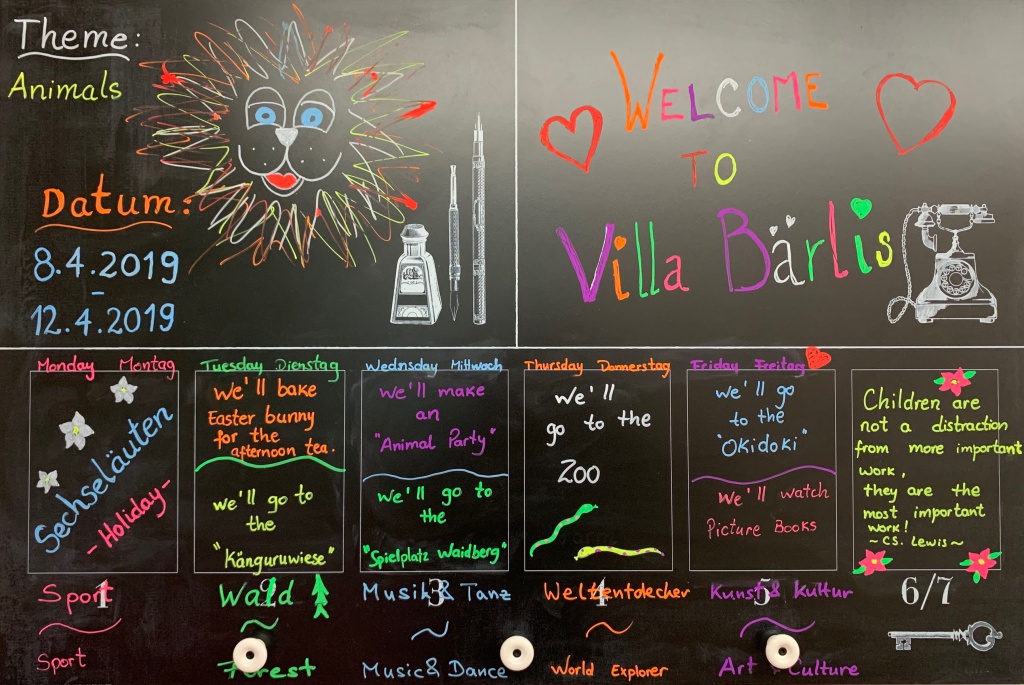 Theme:
Animals
Datum:
8.4.2019
-
12.4.2019
WELCOME
TO
Villa Bärlis
Monday Montag
Sechseläuten
- Holiday -
1
Sport
Sport
Tuesday Dienstag
We'll bake
Easter bunny
for the
afternoon tea.
we'll go to
the
"Känguruwiese"
2
Wald
Forest
Wednsday Mittwoch
We'll make
an
"Animal Party"
we'll go to
the
"Spielplatz Waidberg"
3
Musik & Tanz
Music & Dance
Thursday Donnerstag
we'll
go to the
Zoo
4
Weltentdecker
World Explorer
Friday Freitag
we'll go
to the
"Okidoki"
we'll watch
Picture Books
5
Kunst & Kultur
Art & Culture
Children are
not a distraction
from more important
work,
they are the
most important
work!
~ CS. Lewis ~
6/7